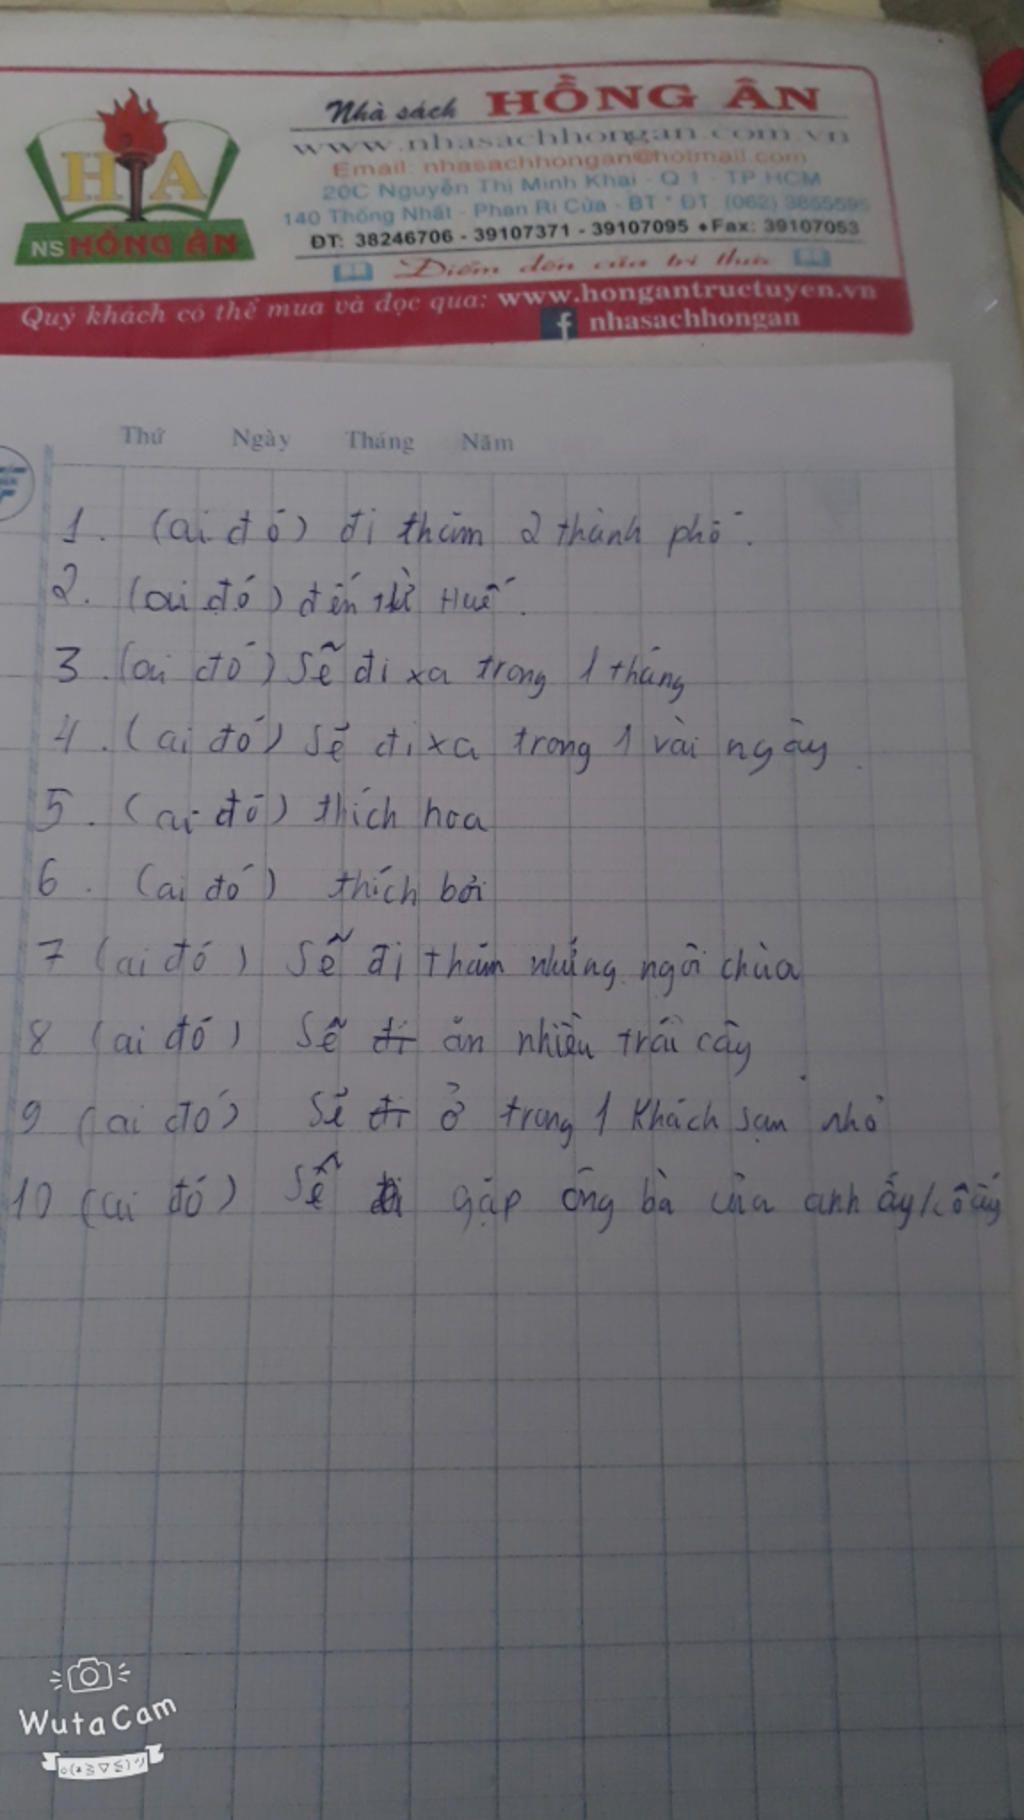 Nhà sách HỒNG ÂN
www.nhasachhongan.com.vn
Email: nhasachhongan@hotmail.com
20C Nguyễn Thị Minh Khai - Q 1 - TP HCM
140 Thống Nhất - Phan Rí Cửa - BT * ĐT: (062) 3855595
ĐT: 38246706 - 39107371 - 39107095 • Fax: 39107053
Điểm đến của tri thức
HA
NS HỒNG ÂN
Quý khách có thể mua và đọc qua: www.hongantructuyen.vn
f nhasachhongan
Thứ Ngày Tháng Năm
1. (ai đó) đi thăm 2 thành phố.
2. (ai đó) đến từ Huế.
3. (ai đó) Sẽ đi xa trong 1 tháng
4. (ai đó) sẽ đi xa trong 1 vài ngày.
5. (ai đó) thích hoa
6. (ai đó) thích bơi
7 (ai đó) Sẽ đi thăm những ngôi chùa
8 (ai đó) Sẽ đi ăn nhiều trái cây
9 (ai đó) Sẽ đi ở trong 1 khách sạn nhỏ
10 (ai đó) Sẽ đi gặp ông bà của anh ấy/cô ấy
WutaCam